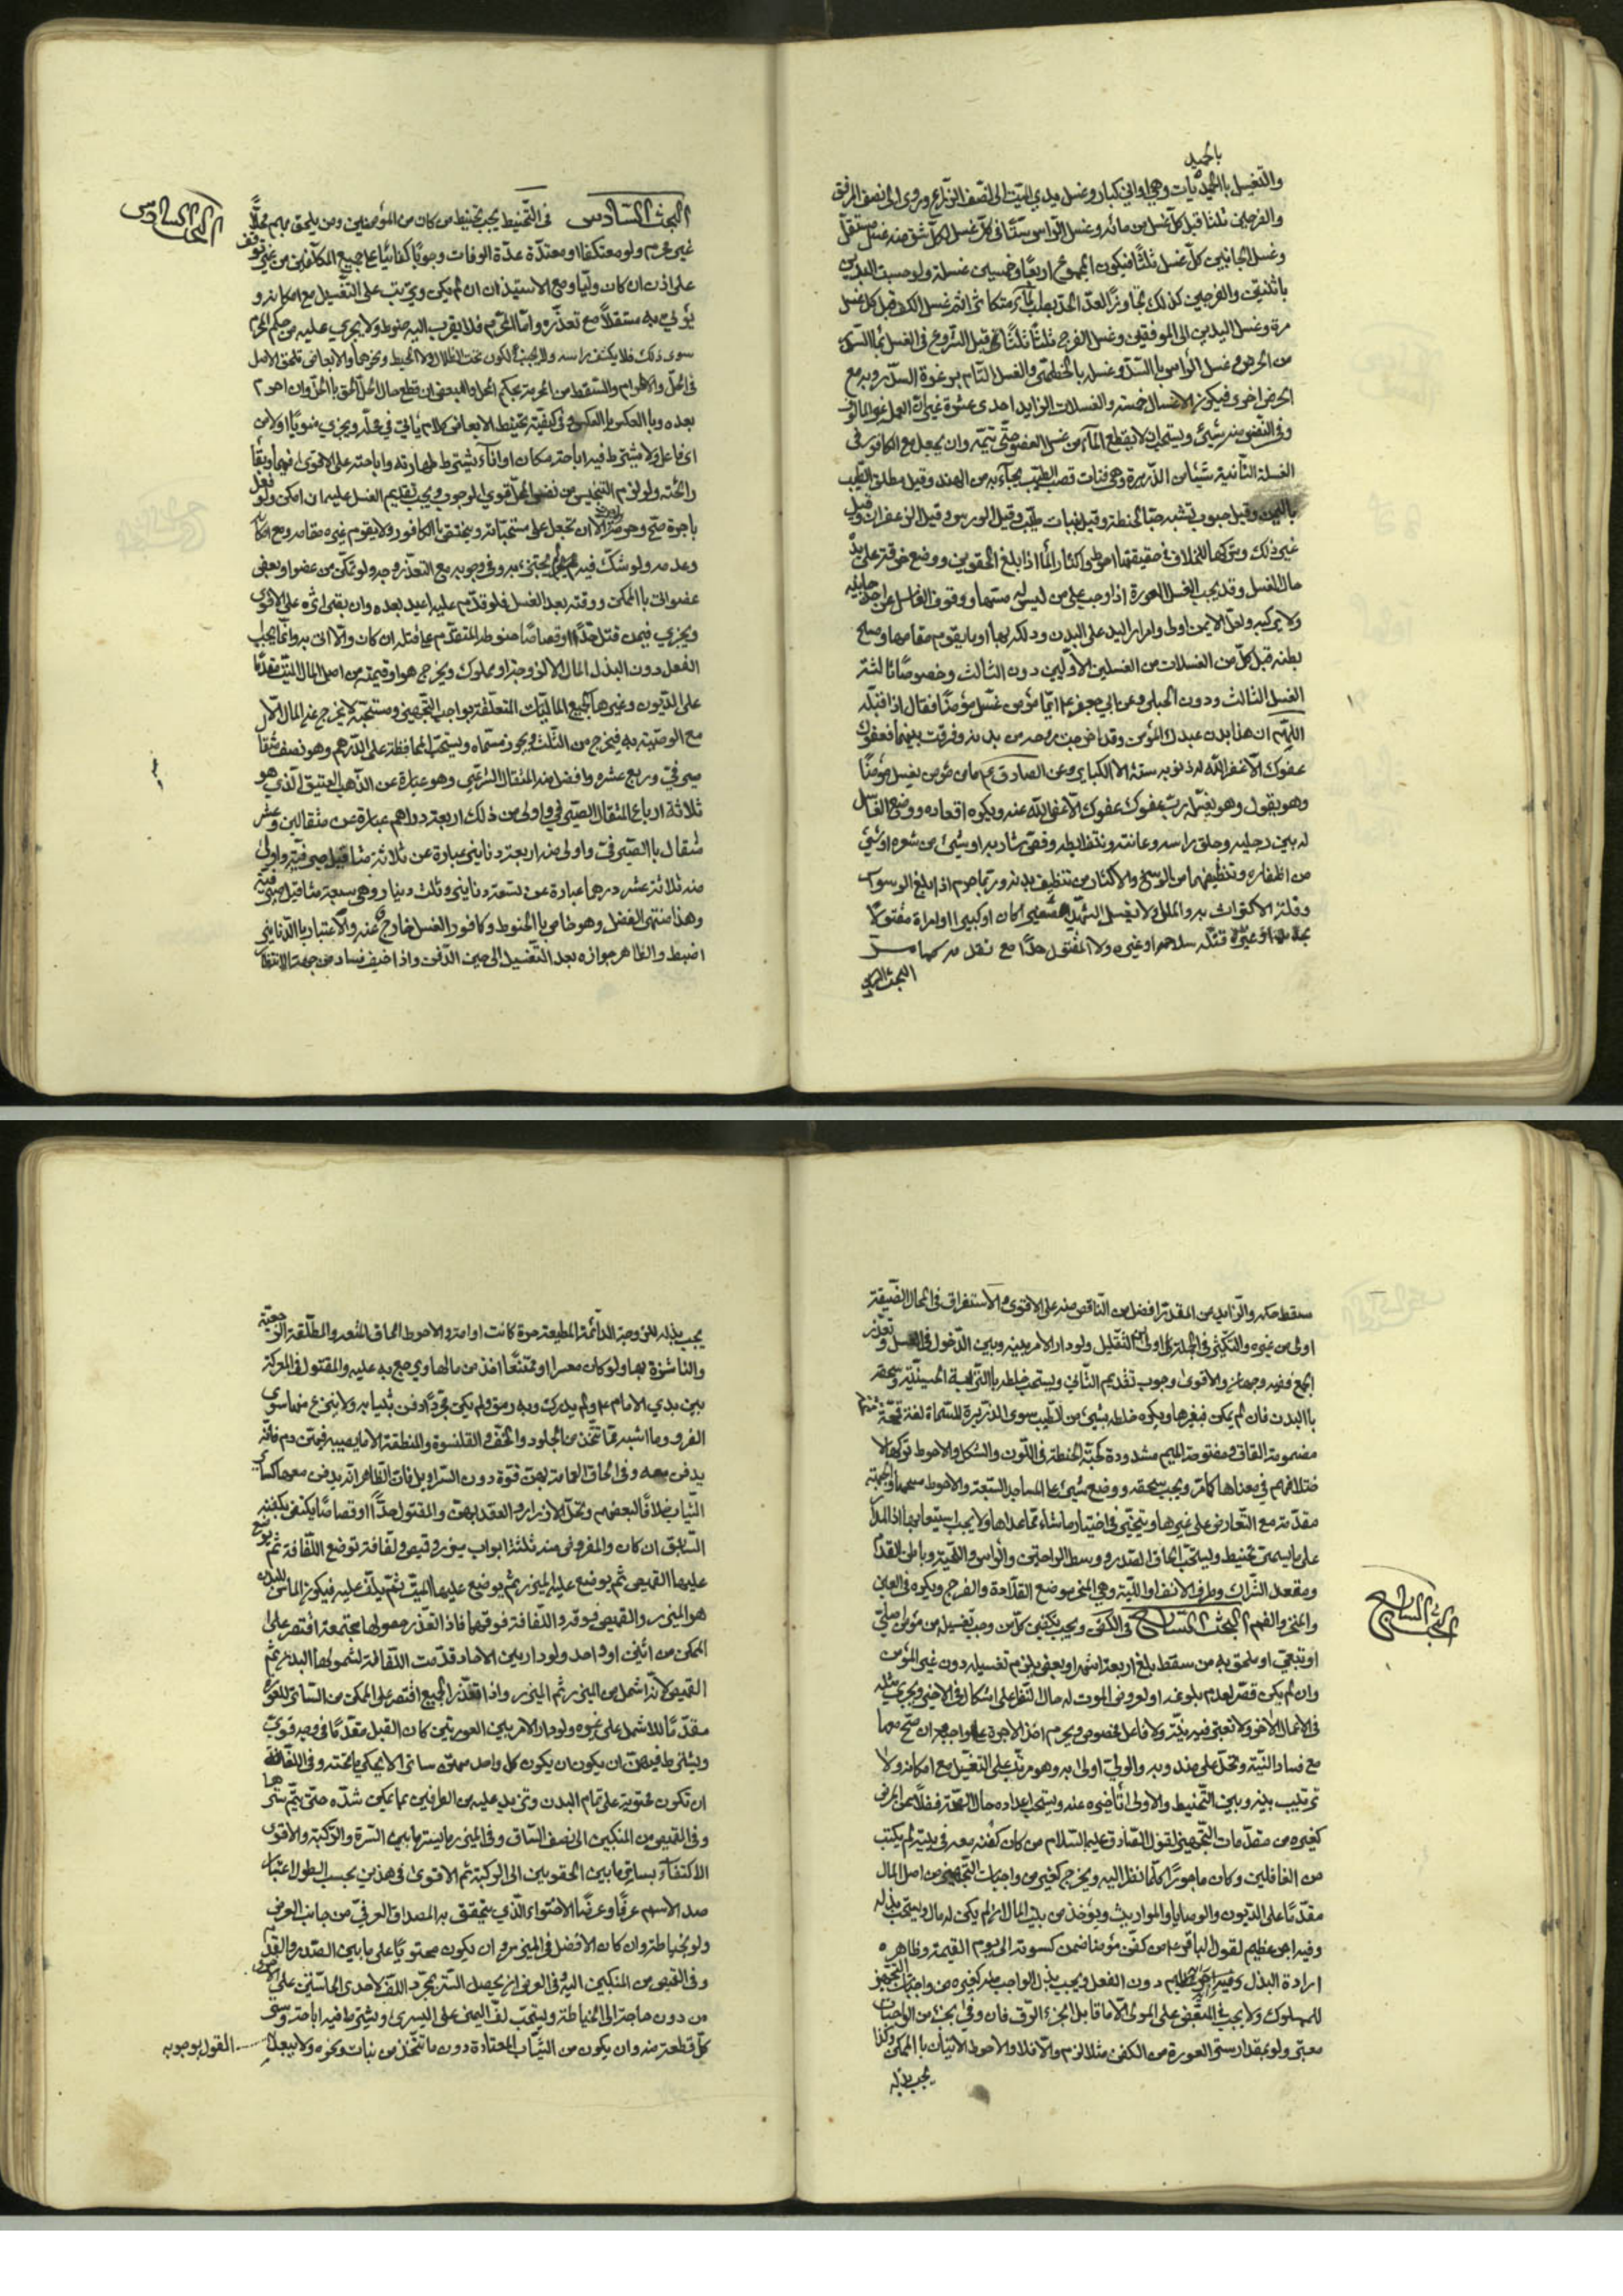 بالحميد
والتغسيل بالحميديات وهي اواني كبار وغسل يدي الميت الى نصف الذراع وروي الى نصف المرفق
والفرجين ثلثا قبل كل غسل من مائه وغسل الراس
وغسل الجانبين كل غسل ثلثا فيكون المجموع اربعا وخمسين غسلة ولو حسبت اليدين
باثنتين والفرجين كذلك تجاوز العدد
مرة وغسل اليدين الى المرفقين وغسل الفرج ثلثا ثلثا قبل الشروع في الغسل بماء السدر
من الحرض وغسل الراس بالسدر وغسله بالخطمي والغسل التام برغوة السدر وبه مع
الحرض اخرى فيكون الاغسال خمسة والغسلات الزايد احدى عشرة
وفي النفس منه شيئ ويستحب ان لا يقطع الماء عن غسل العضو حتى يتمه وان يجعل مع الكافور في
الغسلة الثانية شيئا من الذريرة وهي فتات قصب الطيب يجاء به من الهند وقيل مطلق الطيب
وقيل حبوب تشبه حب الحنطة وقيل نبات طيب وقيل الورس وقيل الزعفران وقيل
غير ذلك وتركها للخلاف في حقيقتها احوط واكثار الماء اذا بلغ الحقوين ووضع خرقة على يده
حال الغسل وقد يجب لغسل العورة اذا وجب على من ليس له مسها ووقوف الغاسل عن احد جانبيه
ولا يركبه ولعل الايمن اولى وامرار اليد على البدن ودلكه بها او بما يقوم مقامها ومسح
بطنه قبل كل من الغسلات من الغسلين الاولين دون الثالث وخصوصا ثالثة
الغسل الثالث ودون الحبلى وعن ابي جعفر ع ايما مؤمن غسل مؤمنا فقال اذا قلبه
اللهم ان هذا بدن عبدك المؤمن وقد اخرجت روحه من بدنه وفرقت بينهما فعفوك
عفوك الا غفر الله له ذنوب سنة الا الكباير وعن الصادق ع ما من مؤمن يغسل مؤمنا
وهو يقول وهو يغسله رب عفوك عفوك الا عفى الله عنه ويكره اقعاده ووضع الغاسل
له بين رجليه وحلق راسه وعانته ونتف ابطه وقص شاربه او شيئ من شعره او شيئ
من اظفاره وتنظيفها من الوسخ والاكثار من تنظيف بدنه وربما حرم اذا بلغ الوسواس
وقلة الاكتراث به والملل ولا يغسل الشهيد صغيرا كان او كبيرا او امراة مقتولا
بحديد او غيره قتله سلاحه او غيره ولا المقتول حدا مع تقديمه كما مر
البحث السادس
البحث السادس في التحنيط يجب تحنيط من كان من المؤمنين ومن يلحق بهم محلا
غير محرم ولو معتكفا او معتدة عدة الوفات وجوبا كفائيا على جميع المكلفين من غير توقف
على اذن ان كان وليا ومع الاستيذان ان لم يكن ويرتب على التغسيل مع امكانه و
يؤتى به مستقلا مع تعذره واما المحرم فلا يقرب اليه حنوط ولا يجري عليه من حكم المحرم
سوى ذلك فلا يكشف راسه ولا يجب الكون تحت الظلال ولا المخيط ونحوها والابعاض تلحق الاصل
في الحل والاحرام والسقط من المحرمة بحكم المحل والبعض ان قطع حال الحل الحق بالحل وان احرم
بعده وبالعكس بالعكس وفي كيفية تحنيط الابعاض كلام ياتي في محله ويجزي منويا اولا من
اي فاعل ولا يشترط فيه اباحة مكان او اناء ويشترط طهارته واباحته على الاقوى فيهما وبقاء
رائحته ولو لزم التنجيس من نفس المحل قوي الوجوب ويجب تقديم الغسل عليه ان امكن ولو فعل
باجرة صح وحرمت الا ان تجعل على مستحباته ويختص بالكافور ولا يقوم غيره مقامه مع امكانه
وعدمه ولو شك فيه لم يجتزئ به وفي وجوبه مع التعذر وجه ولو تمكن من عضو او بعض
عضو اتى بالممكن ووقته بعد الغسل فلو قدم عليه اعيد بعده وان بقى اثره على الاقوى
ويجزي فيمن قتل حدا او قصاصا حنوطه المتقدم على قتله ان كان والا اتى به وانما يجب
الفعل دون البذل للمال الا لزوجة او مملوك ويخرج هو او قيمته من اصل المال للميت مقدما
على الديون وغيرها كجميع الماليات المتعلقة بواجب التجهيز ومستحبه لا يخرج عنه المال الا
مع الوصية به فيخرج من الثلث ويجوز مسماه ويستحب المحافظة على الدرهم وهو نصف مثقال
صيرفي وربع عشره وافضل منه المثقال الشرعي وهو عبارة عن الذهب العتيق الذي هو
ثلاثة ارباع المثقال الصيرفي واولى من ذلك اربعة دراهم عبارة عن مثقالين وعشر
مثقال بالصيرفي واولى منه اربعة دنانير عبارة عن ثلاثة مثاقيل صيرفية واولى
منه ثلاثة عشر درهما عبارة عن تسعة دنانير وثلث دينار وهي سبعة مثاقيل صيرفية
وهذا منتهى الفضل وهو خاص بالحنوط وكافور الغسل خارج عنه والاعتبار بالدنانير
اضبط والظاهر جوازه بعد التغسيل الى حين الدفن واذا خيف فساده من جهة الانتظار
البحث السادس
سقط حكمه والزايد من المقدر افضل من الناقص منه على الاقوى والاستغراق في المحال الضيقة
اولى من غيره والتكثير في الجملة اولى من التقليل ولو دار الامر بينه وبين الدخول في الغسل وتعذر
الجمع ففيه وجهان والاقوى وجوب تقديم الثاني ويستحب خلطه بالتربة الحسينية وسحقه
باليد فان لم يكن فبغيرها ويكره خلطه بشيئ من الطيب سوى الذريرة المسماة لغة قمحة
مضمومة القاف ومفتوحة الميم مشددة كحبة الحنطة في اللون والشكل والاحوط تركها لا
ختلافهم في معناها كما مر ويجب سحقه ووضع شيئ على المساجد السبعة والاحوط مسحها والجبهة
مقدمة مع التعارض على غيرها ويتخير في اختيار ما شاء مما عداها ولا يجب استيعابها اذ المدار
على ما يسمى تحنيط ويستحب الحاق الصدر ووسط الراحتين والراس واللحية وباطن القدم
ومقعد الشراك وطرف الانف واللبة وهي المنحر موضع القلادة والفرج ويكره في العين
والمنخر والفم البحث السابع في الكفن ويجب تكفين كل من وجب تغسيله من مؤمن اصلي
او تبعي او ملحق به من سقط بلغ اربعة اشهر او بعض يلزم تغسيله دون غير المؤمن
وان لم يكن قصر لعدم بلوغه
في الاعمال الاخر ولا تعتبر فيه نية ولا فاعل مخصوص ويحرم اخذ الاجرة على واجبه وان صح معها
مع فساد النية وتحل على مندوبه والولي اولى به وهو مرتب على التغسيل مع امكانه ولا
ترتيب بينه وبين التحنيط والاولى تأخيره عنه ويستحب اعداده حال الصحة فضلا عن المرض
كغيره من مقدمات التجهيز لقول الصادق عليه السلام من كان كفنه معه في بيته لم يكتب
من الغافلين وكان ماجورا كلما نظر اليه ويخرج كغيره من واجبات التجهيز من اصل المال
مقدما على الديون والوصايا والمواريث ويؤخذ من بيت المال ان لم يكن له مال ويستحب بذله
وفيه اجر عظيم لقول الباقر ع من كفن مؤمنا ضمن كسوته الى يوم القيمة وظاهره
ارادة البذل وفيه اجر عظيم دون الفعل ويجب بذل الواجب منه كغيره من واجبات التجهيز
للمملوك ولا يجب في المبعض على المولى الا ما قابل الجزء الرق فان وفى بجزء من الواجبات
معتبر ولو بمقدار ستر العورة من الكفن مثلا لزم والا فلا والاحوط الاتيان بالممكن وكذا
يجب بذله
البحث السابع
يجب بذله للزوجة الدائمة المطيعة حرة كانت او امة والاحوط الحاق المتعة والمطلقة الرجعية
والناشزة بها ولو كان معسرا او ممتنعا اخذ من مالها ويرجع به عليه والمقتول في المعركة
بين يدي الامام ع ولم يدرك وبه رمق ولم يكن مجردا دفن بثيابه ولا ينزع منها سوى
الفرو وما اشبه مما تتخذ من الجلود والخف والقلنسوة والمنطقة الا ما يصيبه فيهن دم فانه
يدفن معه وفي الحاق العمامة بهن قوة دون السراويل فان الظاهر انه يدفن معها كسائر
الثياب خلافا لبعضهم وتحل الازرار والعقد لهن والمقتول حدا او قصاصا يكتفى بكفنه
السابق ان كان والمفروض منه ثلثة اثواب ميزر وقميص ولفافة توضع اللفافة ثم يوضع
عليها القميص ثم يوضع عليه الميزر ثم يوضع عليها الميت ثم يلف عليه فيكون الماس للبدن
هو الميزر والقميص فوقه واللفافة فوقهما فاذا تعذر حصولها مجتمعة اقتصر على
الممكن من اثنين او واحد ولو دار بين الاحاد قدمت اللفافة لشمولها البدن ثم
القميص لانه اشمل من الميزر ثم الميزر واذا تعذر الجميع اقتصر على الممكن من الساتر للعورة
مقدما للاشمل على غيره ولو دار الامر بين العورتين كان القبل مقدما في وجه قوي
ويشترط فيهن ان يكون كل واحد منهن ساترا لا يحكي ما تحته وفي اللفافة
ان تكون محتوية على تمام البدن وتزيد عليه من الطرفين بما يمكن شده حتى يتم سترها
وفي القميص من المنكبين الى نصف الساق وفي الميزر ما يستر ما بين السرة والركبة والاقوى
الاكتفاء بساتر ما بين الحقوين الى الركبة ثم الاقوى في هذين بحسب الطول اعتبار
صدق الاسم عرفا وعرضا الاحتواء الذي يتحقق به المصداق العرفي من جانب العرض
ولو بخياطة وان كان الافضل في الميزر ان يكون محتويا على ما بين الصدر والقدم
وفي القميص من المنكبين اليه وفي العرض ان يحصل الستر بمجرد اللف لاحدى الحاشيتين على الاخرى
من دون حاجة الى الخياطة ويستحب لف اليمنى على اليسرى ويشترط فيه اباحته وستر
كل قطعة منه وان يكون من الثياب المعتادة دون ما تتخذ من نبات ونحوه ولا يبعد
القول بوجوبه